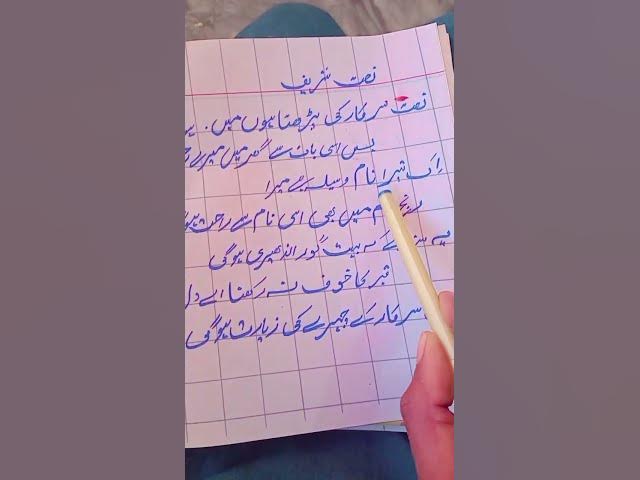 نعت شریف
نعت سرکار کی پڑھتا ہوں میں۔
بس اسی بات سے گھر میں میرے
اِک تیرا نام وسیلہ ہے میرا
میں بھی اسی نام سے راحت
یہ ہے کہ بہت گور اندھیری ہوگی
قبر کا خوف نہ رکھنا اے دل
سرکار کے چہرے کی زیارت ہوگی